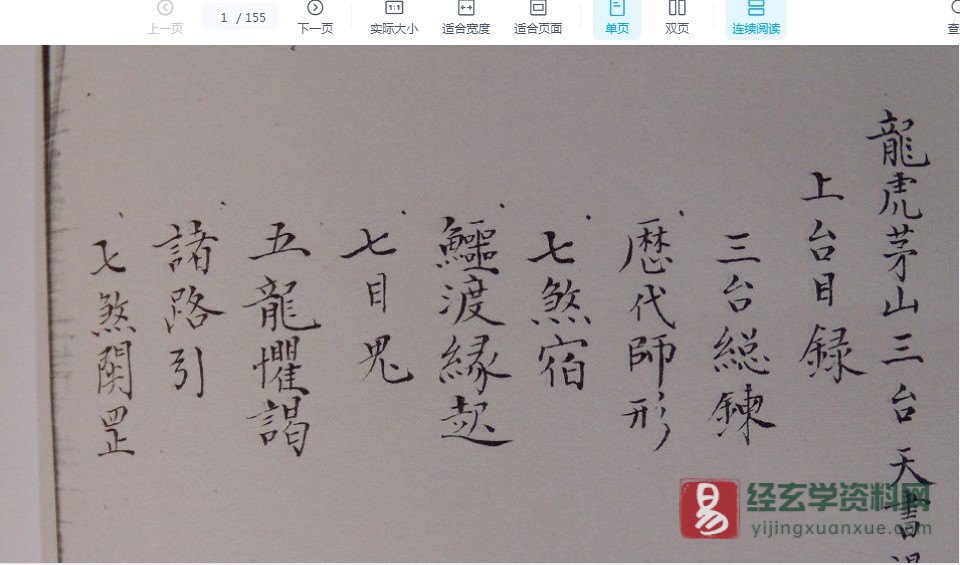 上一页
1 / 155
下一页
1:1
实际大小
适合宽度
适合页面
单页
双页
连续阅读
查
龍虎茅山三台天書
上台目録
三台総鍊
歷代師形
七煞宿
鱷渡緣起
七目鬼
五龍懼謁
諸路引
七煞関罡
易
经玄学资料网
yijingxuanxue.com